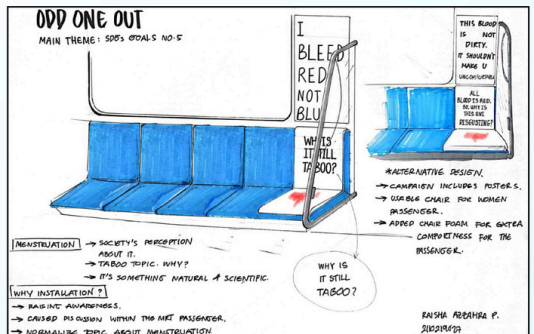 ODD ONE OUT
MAIN THEME: SDG's GOALS NO.5
I
BLEED
RED
NOT
BLU
WHY IS
IT STILL
TABOO?
THIS BLOOD
IS NOT
DIRTY.
IT SHOULDN'T
MAKE U
UNCOMFORTABLE
ALL
BLOOD IS RED.
SO WHY IS
THIS ONE
DISGUSTING?
*ALTERNATIVE DESIGN.
→ CAMPAIGN INCLUDES POSTERS.
→ USABLE CHAIR FOR WOMEN
PASSENGER.
→ ADDED CHAIR FOAM FOR EXTRA
COMFORTNESS FOR THE
PASSENGER.
MENSTRUATION → SOCIETY'S PERCEPTION
ABOUT IT.
→ TABOO TOPIC. WHY?
→ IT'S SOMETHING NATURAL & SCIENTIFIC.
WHY IS
IT STILL
TABOO?
WHY INSTALLATION?
→ RAISING AWARENESS.
→ CAUSED DISCUSSION WITHIN THE MRT PASSENGER.
→ NORMALIZE TOPIC ABOUT MENSTRUATION
RAISHA P.